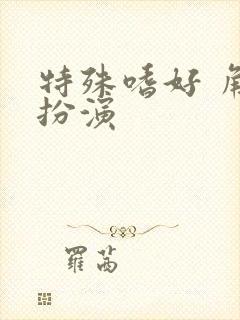 特殊嗜好 角
扮演
羅茜